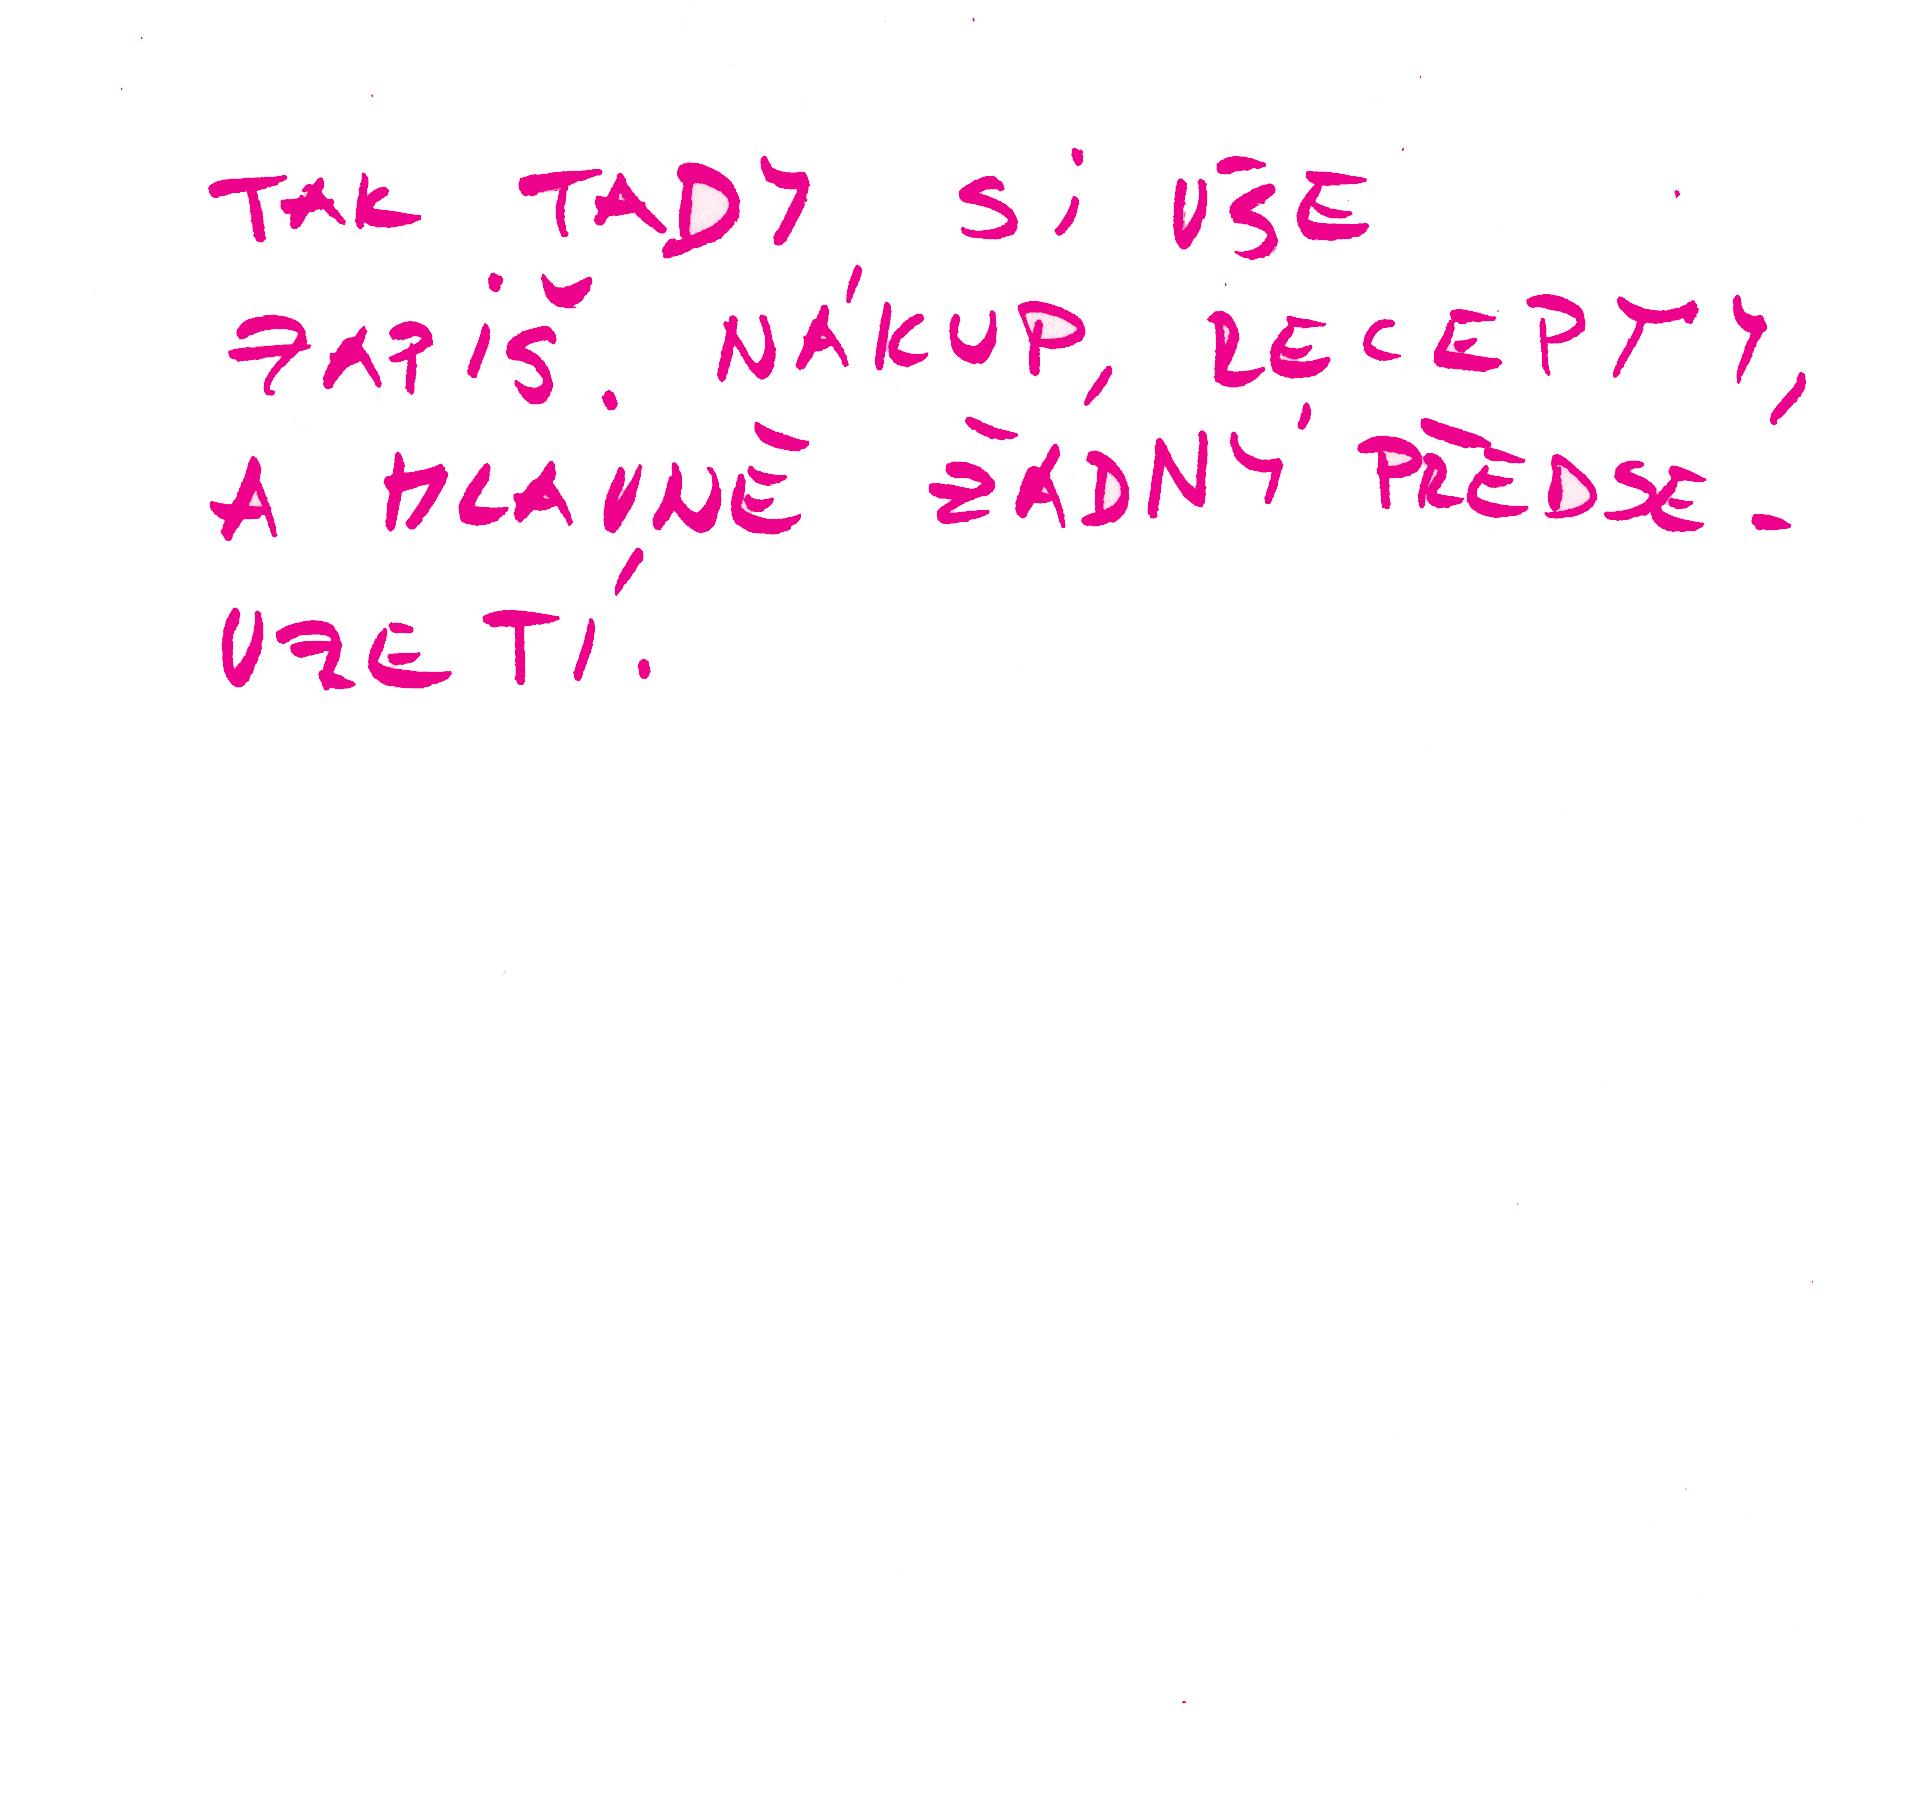 TAK TADY SI VŠE
ZAPIŠ. NÁKUP, RECEPTY,
A HLAVNĚ ŽÁDNÝ PŘEDSE-
VZETÍ.